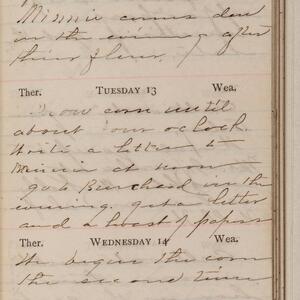 Minnie comes down
in the evening after
their flour.
Ther. TUESDAY 13 Wea.
Plow corn until
about four o'clock.
Write a letter to
Minnie at noon
go to Burchard in the
evening. get a letter
and a host of papers
Ther. WEDNESDAY 14 Wea.
We begin the corn
the second time